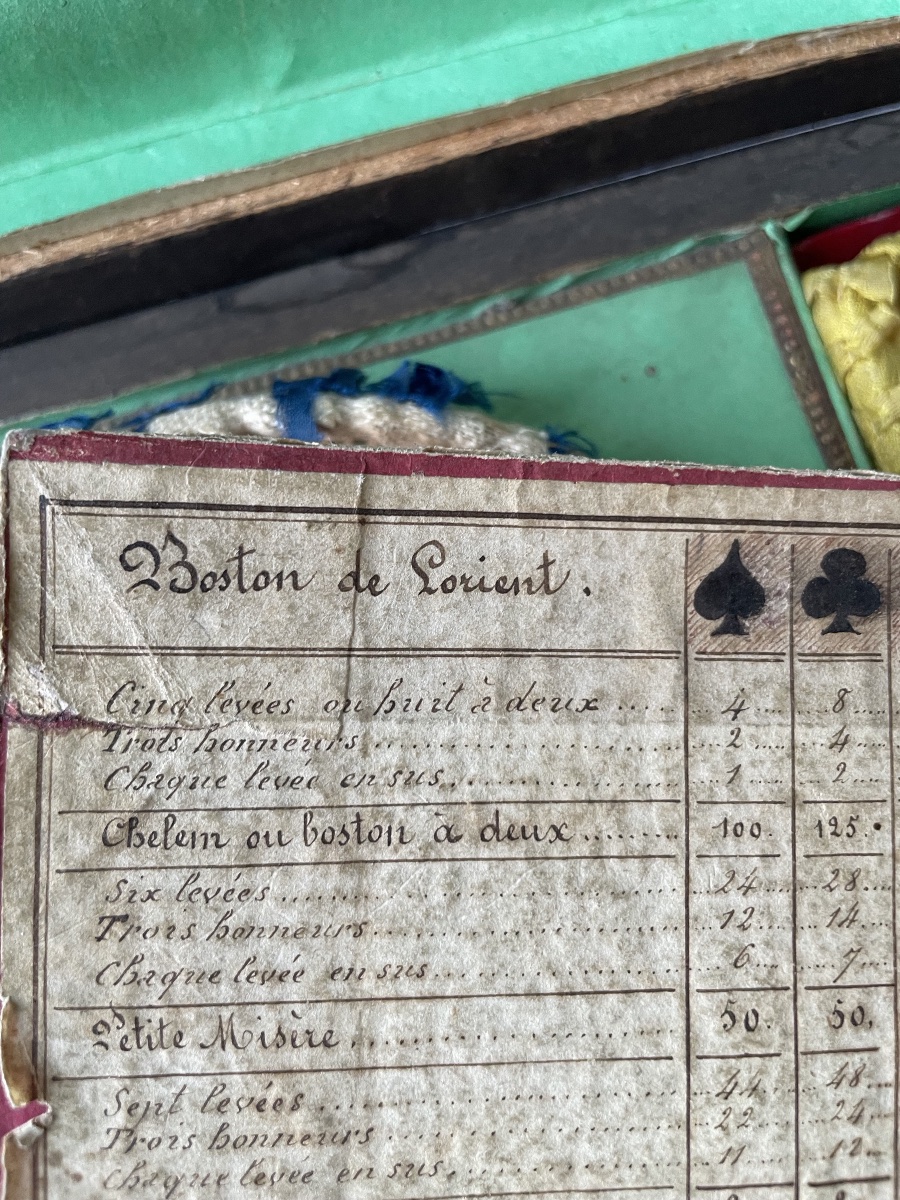 Boston de Lorient.
Cinq levées ou huit à deux .... 4 8
Trois honneurs ............ 2 4
Chaque levée en sus ............ 1 2
Chelem ou boston à deux ......... 100. 125.
Six levées ............ 24 28
Trois honneurs ............ 12 14
Chaque levée en sus ............ 6 7
Petite Misère ............ 50. 50.
Sept levées ............ 44 48
Trois honneurs ............ 22 24
Chaque levée en sus ............ 11 12